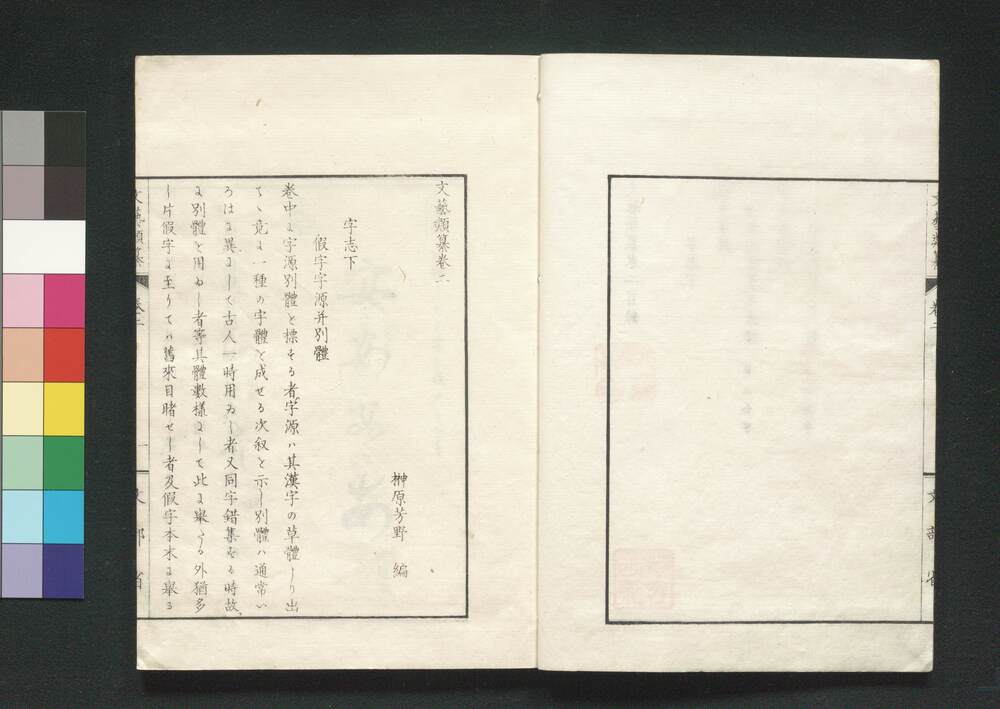 文藝類纂卷二
榊原芳野 編
字志下
假字字源并別體
卷中に字源別體と標せる者字源ハ其漢字の草體より出
て、竟に一種の字體と成せる次叙を示し別體ハ通常い
ろはに異にして古人一時用ゐし者又同字錯集せる時故
に別體を用ゐし者等其體數樣にして此に擧たる外猶多
し片假字に至りてハ舊來目睹せし者及假字本末に擧る
文藝類纂
卷二
一
文部省
文藝類纂
卷二
文部省